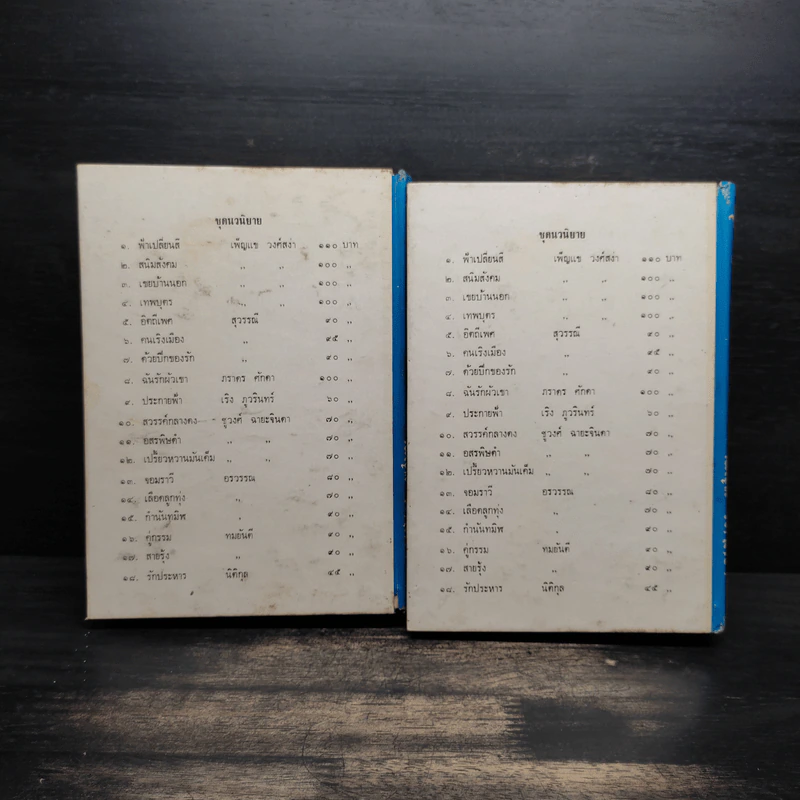 ชุดนวนิยาย
๑. ฟ้าเปลี่ยนสี เพ็ญแข วงศ์สง่า ๑๑๐ บาท
๒. สนิมสังคม ,, ,, ๑๐๐ ,,
๓. เขยบ้านนอก ,, ,, ๑๐๐ ,,
๔. เทพบุตร ,, ,, ๑๐๐ ,,
๕. อิตถีเพศ สุวรรณี ๙๐ ,,
๖. ฅนเริงเมือง ,, ๙๕ ,,
๗. ด้วยปีกของรัก ,, ๙๐ ,,
๘. ฉันรักผัวเขา ภราดร ศักดา ๑๐๐ ,,
๙. ประกายฟ้า เริง ภูวรินทร์ ๖๐ ,,
๑๐. สวรรค์กลางดง ชูวงศ์ ฉายะจินดา ๗๐ ,,
๑๑. อสรพิษดำ ,, ,, ๗๐ ,,
๑๒. เปรี้ยวหวานมันเค็ม ,, ,, ๗๐ ,,
๑๓. จอมราวี อรวรรณ ๘๐ ,,
๑๔. เลือดลูกทุ่ง ,, ๗๐ ,,
๑๕. กำนันทมิฬ ,, ๙๐ ,,
๑๖. คู่กรรม ทมยันตี ๙๐ ,,
๑๗. สายรุ้ง ,, ๙๐ ,,
๑๘. รักประหาร นิติกุล ๔๕ ,,
ชุดนวนิยาย
๑. ฟ้าเปลี่ยนสี เพ็ญแข วงศ์สง่า ๑๑๐ บาท
๒. สนิมสังคม ,, ,, ๑๐๐ ,,
๓. เขยบ้านนอก ,, ,, ๑๐๐ ,,
๔. เทพบุตร ,, ,, ๑๐๐ ,,
๕. อิตถีเพศ สุวรรณี ๙๐ ,,
๖. ฅนเริงเมือง ,, ๙๕ ,,
๗. ด้วยปีกของรัก ,, ๙๐ ,,
๘. ฉันรักผัวเขา ภราดร ศักดา ๑๐๐ ,,
๙. ประกายฟ้า เริง ภูวรินทร์ ๖๐ ,,
๑๐. สวรรค์กลางดง ชูวงศ์ ฉายะจินดา ๗๐ ,,
๑๑. อสรพิษดำ ,, ,, ๗๐ ,,
๑๒. เปรี้ยวหวานมันเค็ม ,, ,, ๗๐ ,,
๑๓. จอมราวี อรวรรณ ๘๐ ,,
๑๔. เลือดลูกทุ่ง ,, ๗๐ ,,
๑๕. กำนันทมิฬ ,, ๙๐ ,,
๑๖. คู่กรรม ทมยันตี ๙๐ ,,
๑๗. สายรุ้ง ,, ๙๐ ,,
๑๘. รักประหาร นิติกุล ๔๕ ,,